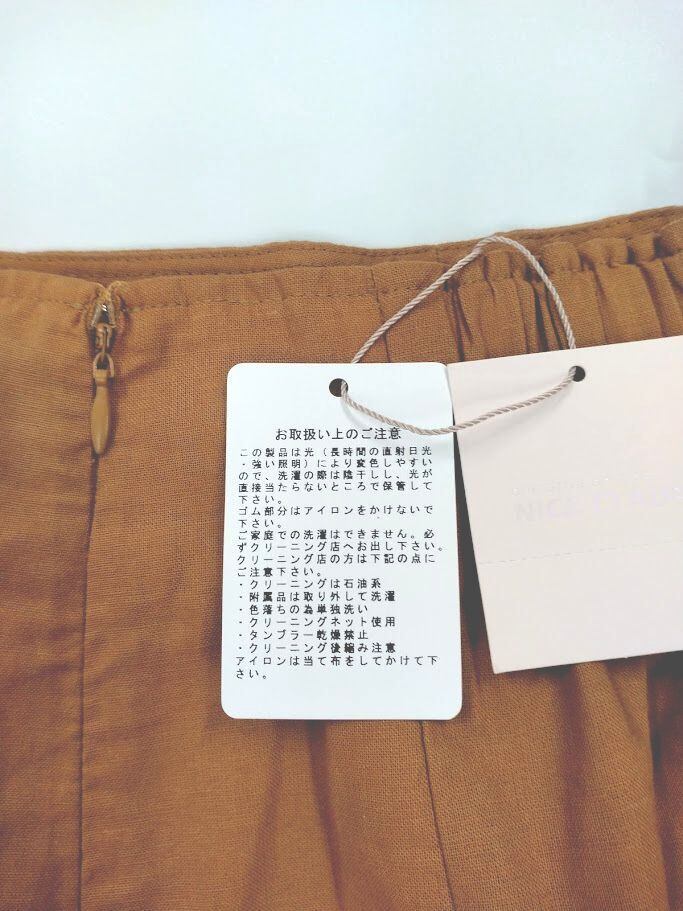 お取扱い上のご注意
この製品は光（長時間の直射日光
・強い照明）により変色しやすい
ので、洗濯の際は陰干しし、光が
直接当たらないところで保管して
下さい。
ゴム部分はアイロンをかけないで
下さい。
ご家庭での洗濯はできません。必
ずクリーニング店へお出し下さい。
クリーニング店の方は下記の点に
ご注意下さい。
・クリーニングは石油系
・附属品は取り外して洗濯
・色落ちの為単独洗い
・クリーニングネット使用
・タンブラー乾燥禁止
・クリーニング後縮み注意
アイロンは当て布をしてかけて下
さい。